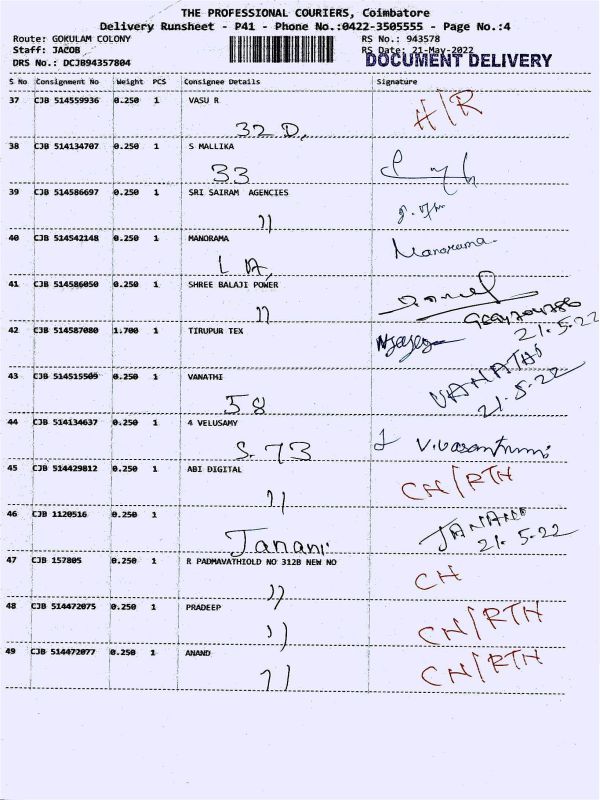 THE PROFESSIONAL COURIERS, Coimbatore
Delivery Runsheet - P41 - Phone No.:0422-3505555 - Page No.:4
Route: GOKULAM COLONY RS No.: 943578
Staff: JACOB RS Date: 21-May-2022
DRS No.: DCJB94357804 DOCUMENT DELIVERY
S No Consignment No Weight PCS Consignee Details Signature
37 CJB 514559936 0.250 1 VASU R H/R
32 D,
38 CJB 514134707 0.250 1 S MALLIKA
33
39 CJB 514586697 0.250 1 SRI SAIRAM AGENCIES
11
40 CJB 514542148 0.250 1 MANORAMA Manorama.
41 CJB 514586050 0.250 1 SHREE BALAJI POWER
11
42 CJB 514587080 1.700 1 TIRUPUR TEX 21.5.22
43 CJB 514515509 0.250 1 VANATHI VANATHI
58 21.5.22
44 CJB 514134637 0.250 1 4 VELUSAMY
S. 73
45 CJB 514429812 0.250 1 ABI DIGITAL CH/RTH
11
46 CJB 1120516 0.250 1 JANANI
Janani 21.5.22
47 CJB 157805 0.250 1 R PADMAVATHIOLD NO 312B NEW NO CH
11
48 CJB 514472075 0.250 1 PRADEEP CH/RTH
11
49 CJB 514472077 0.250 1 ANAND CH/RTH
11